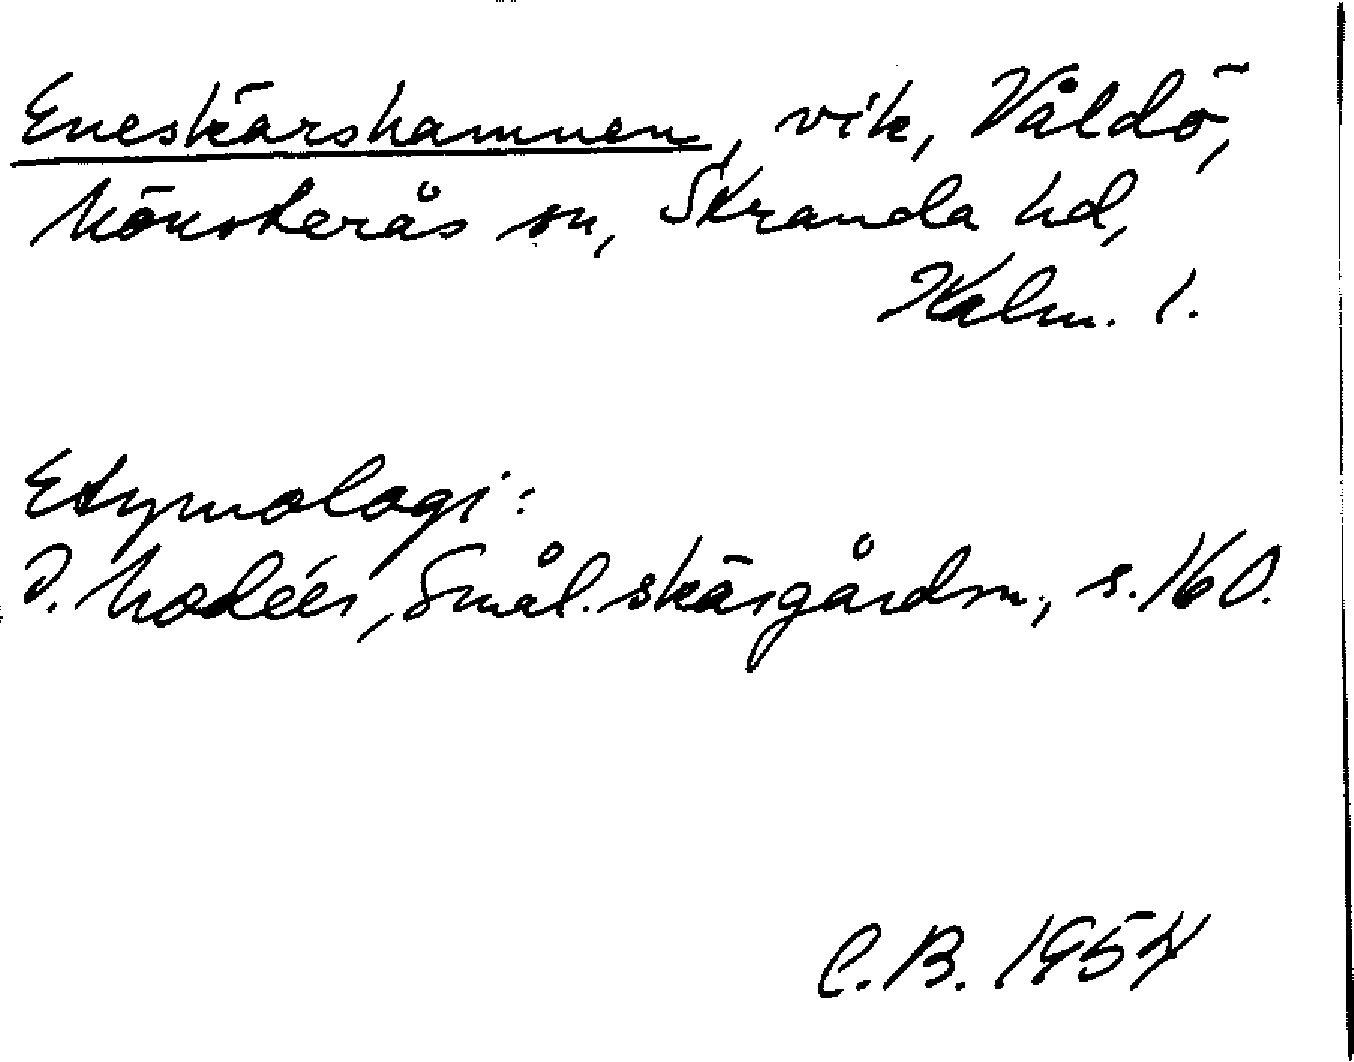 Eneskärshamnen, vik, Våldö,
Mönsterås sn, Stranda hd,
Kalm. l.
Etymologi:
I. Modéer, Smål. skärgårdsn., s. 160.
C.B. 1954